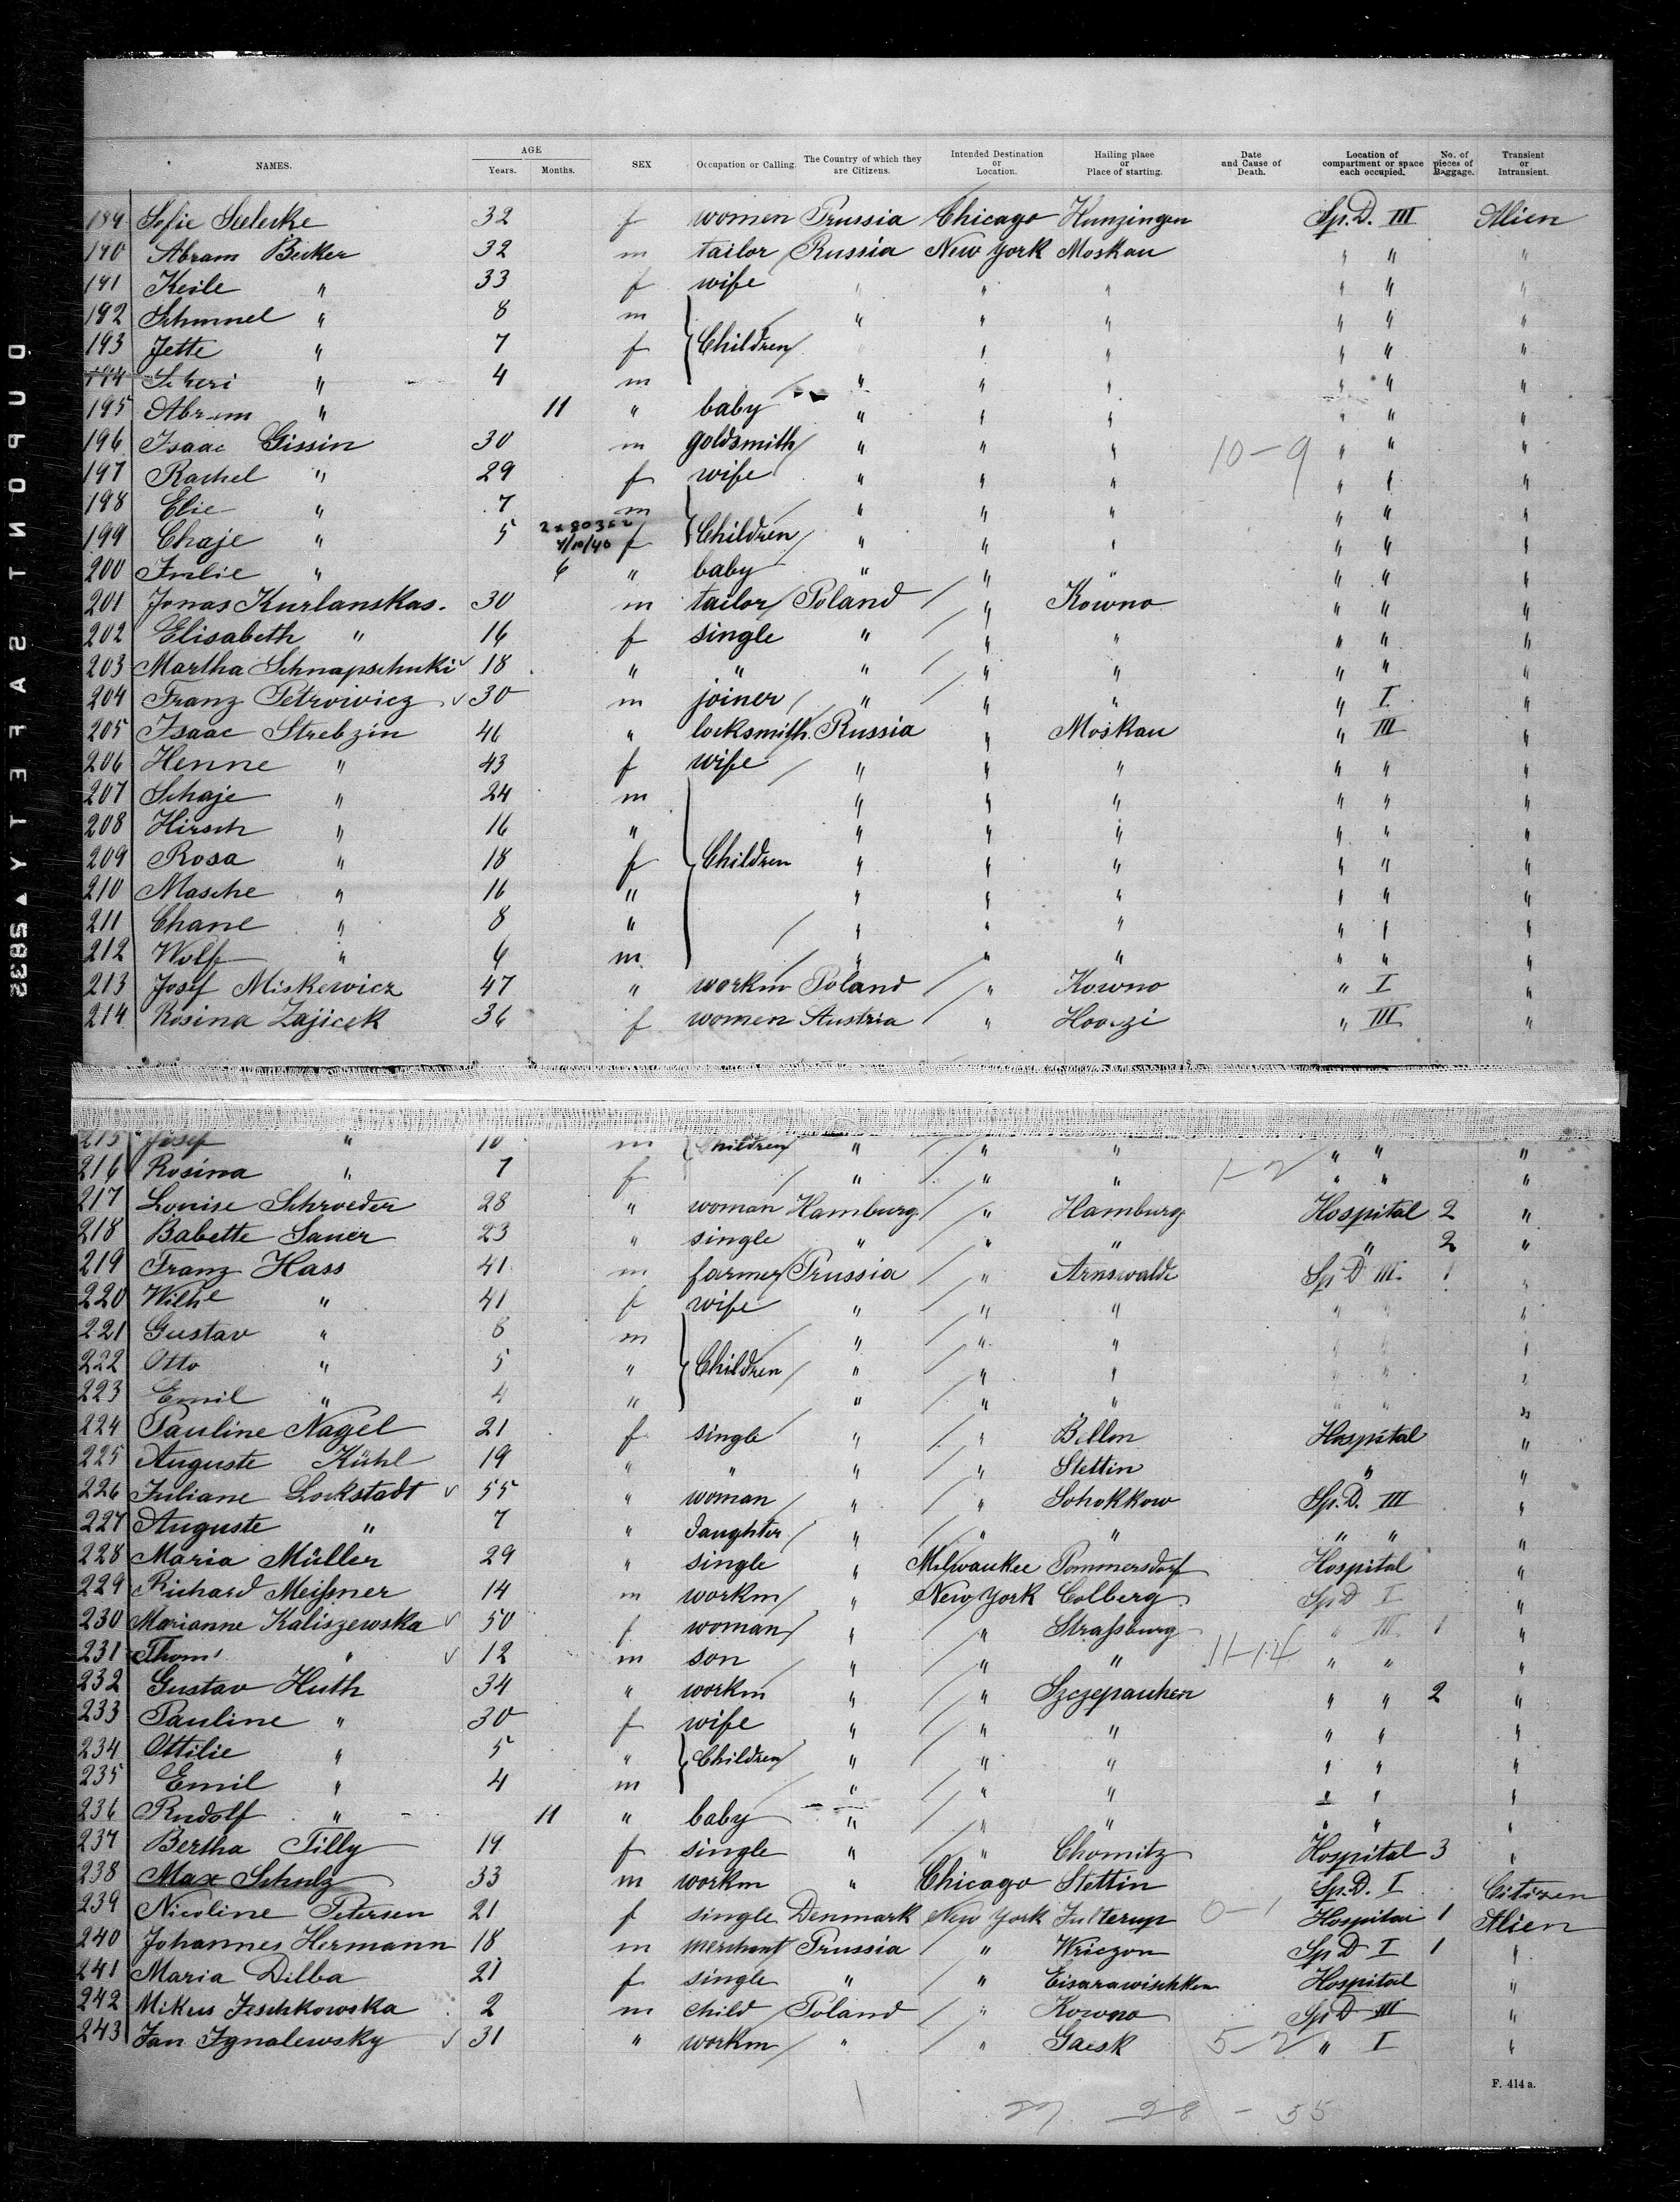 NAMES. AGE Years. Months. SEX Occupation or Calling. The Country of which they are Citizens. Intended Destination or Location. Hailing place or Place of starting. Date and Cause of Death. Location of compartment or space each occupied. No. of pieces of Baggage. Transient or Intransient.
189 Sofie 32 f women Prussia Chicago Sp. D. III Alien
190 Abram Becker 32 m tailor Russia New York Moskau " " "
191 Keile " 33 f wife " " " " " "
192 Schmuel " 8 m " " " " " "
193 Jette " 7 f Children " " " " "
194 " 4 m " " " " " "
195 Abram " 11 " baby " " " " " "
196 Isaac Gissin 30 m goldsmith " " " 10-9 " " "
197 Rachel " 29 f wife " " " " " "
198 Elie " 7 m " " " " " "
199 Chaje " 5 4/10/40 f Children " " " " " "
200 " 6 " baby " " " " " "
201 Jonas Kurlanskas. 30 m tailor Poland " Kowno " " "
202 Elisabeth " 16 f single " " " " " "
203 Martha Schnapschuki 18 " " " " " " " "
204 Franz Petrowicz 30 m joiner " " " " I "
205 Isaac Strebzin 46 " locksmith Russia " Moskau " III "
206 Henne " 43 f wife " " " " " "
207 Schaje " 24 m " " " " " "
208 Hirsch " 16 " " " " " " "
209 Rosa " 18 f Children " " " " " "
210 Masche " 16 " " " " " " "
211 Chane " 8 " " " " " " "
212 Wolf " 6 m " " " " " "
213 Josef Miskewicz 47 " workm Poland " Kowno " I "
214 Rosina Zajicek 36 f women Austria " " III "
215 Josef " 10 m Children " " " " " "
216 Rosina " 7 f " " " 1-2 " " "
217 Louise Schroeder 28 " woman Hamburg " Hamburg Hospital 2 "
218 Babette Sauer 23 " single " " " " 2 "
219 Franz Hass 41 m farmer Prussia " Arnswalde Sp D III. 1 "
220 Wilhe " 41 f wife " " " " " "
221 Gustav " 8 m " " " " " "
222 Otto " 5 " Children " " " " " "
223 Emil " 4 " " " " " " "
224 Pauline Nagel 21 f single " " Bellon Hospital "
225 Auguste Kühl 19 " " " " Stettin " "
226 Juliane Lockstadt 55 " woman " " Schokkow Sp. D. III "
227 Auguste " 7 " daughter " " " " " "
228 Maria Müller 29 " single " Milwaukee Pommersdorf Hospital "
229 Richard Meißner 14 m workm " New York Colberg Sp D I "
230 Marianne Kaliszewska 50 f woman " " Straßburg " III 1 "
231 " 12 m son " " " 11-14 " " "
232 Gustav Huth 34 " workm " " Szczepanken " " 2 "
233 Pauline " 30 f wife " " " " " "
234 Ottilie " 5 " Children " " " " " "
235 Emil " 4 m " " " " " "
236 Rudolf " 11 " baby " " " " " "
237 Bertha Tilly 19 f single " " Chomitz Hospital 3 "
238 Max Schulz 33 m workm " Chicago Stettin Sp. D. I Citizen
239 Nicoline Petersen 21 f single Denmark New York 0-1 Hospital 1 Alien
240 Johannes Hermann 18 m merchant Prussia " Wriezen Sp D I 1 "
241 Maria Dilba 21 f single " " Eisarawischken Hospital "
242 Mikus Jeschkowska 2 m child Poland " Kowno Sp D III "
243 Jan Ignalewsky 31 " workm " " Gaesk 5-2 " I "
F. 414 a.
27 28 - 55
DUPONT SAFETY